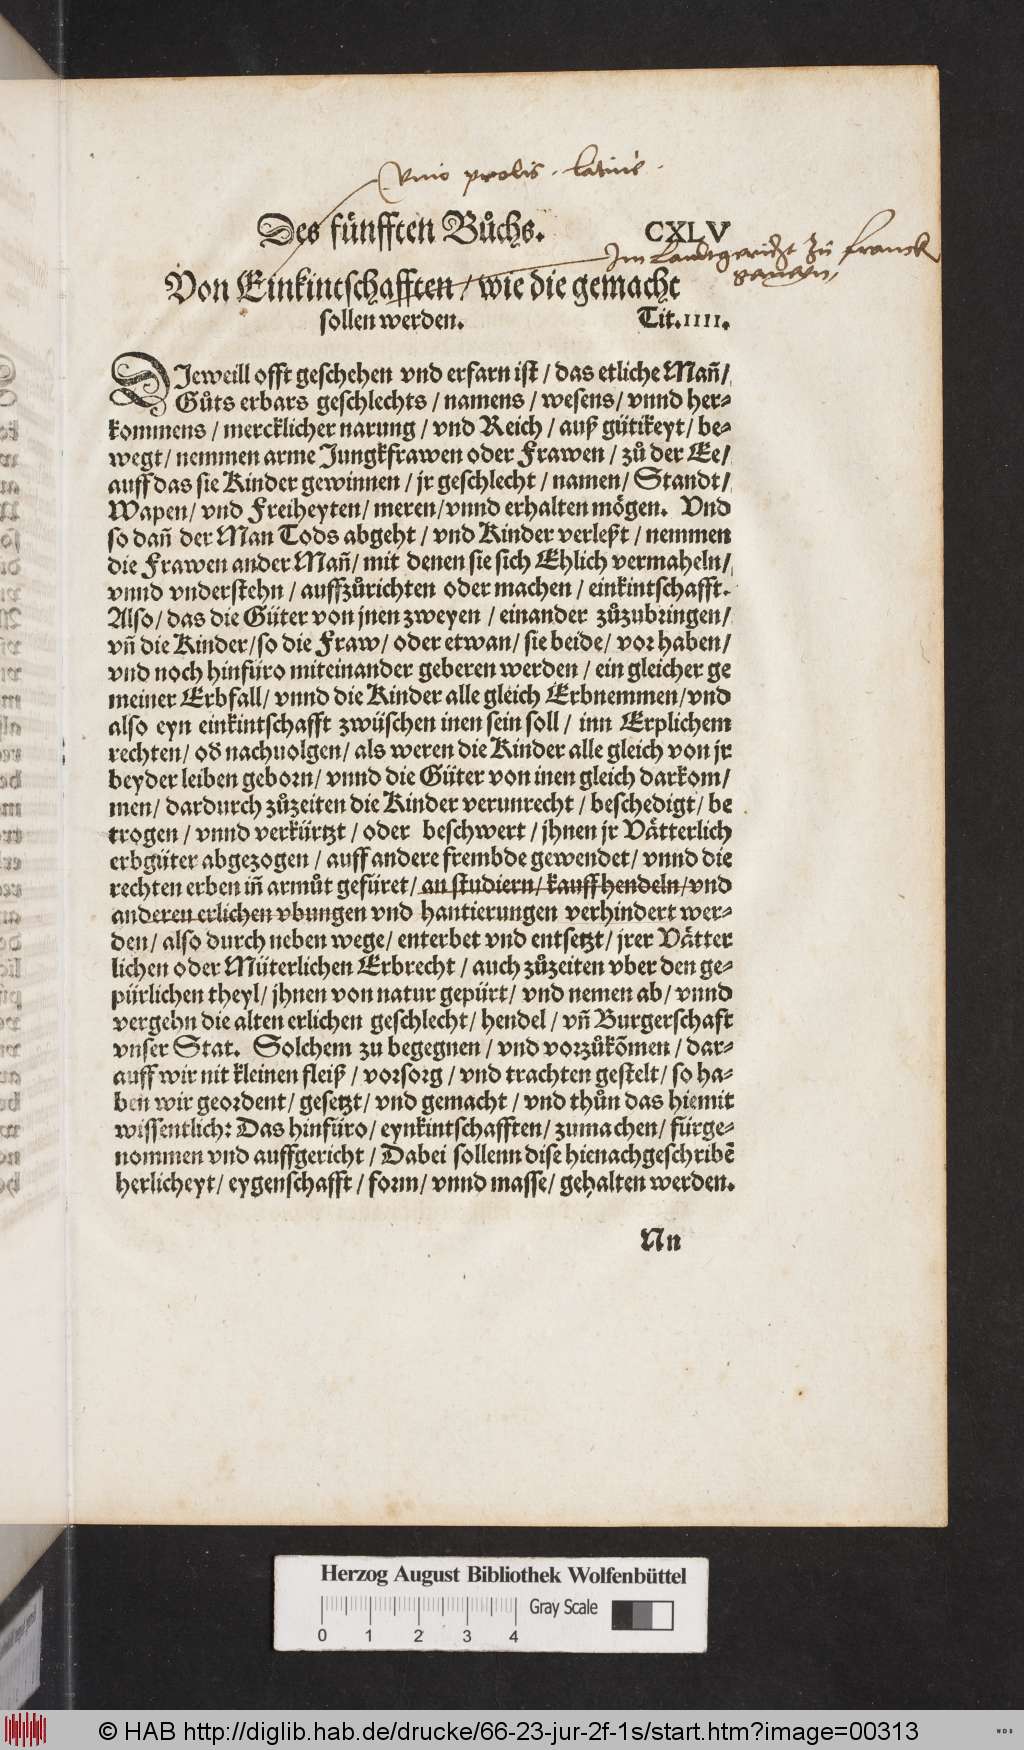 Vnio prolis. latinè.
Des fünfften Bůchs. CXLV
Im Landtgericht zů franck
Von Einkintschafften / wie die gemacht
sollen werden. Tit. IIII.
DIeweill offt geschehen vnd erfarn ist / das etliche Mañ /
Gůts erbars geschlechts / namens / wesens / vnnd her⸗
kommens / mercklicher narung / vnd Reich / auß gütikeyt / be⸗
wegt / nemmen arme Jungkfrawen oder Frawen / zů der Ee /
auff das sie Kinder gewinnen / jr geschlecht / namen / Standt /
Wapen / vnd Freiheyten / meren / vnnd erhalten mögen. Vnd
so dañ der Man Tods abgeht / vnd Kinder verleßt / nemmen
die Frawen ander Mañ / mit denen sie sich Ehlich vermaheln /
vnnd vnderstehn / auffzůrichten oder machen / einkintschafft.
Also / das die Güter von jnen zweyen / einander zůzubringen /
vñ die Kinder / so die Fraw / oder etwan / sie beide / vor haben /
vnd noch hinfüro miteinander geberen werden / ein gleicher ge
meiner Erbfall / vnnd die Kinder alle gleich Erbnemmen / vnd
also eyn einkintschafft zwüschen inen sein soll / inn Erplichem
rechten / oď nachuolgen / als weren die Kinder alle gleich von jr
beyder leiben geborn / vnnd die Güter von inen gleich darkom /
men / dardurch zůzeiten die Kinder verunrecht / beschedigt / be
trogen / vnnd verkürtzt / oder beschwert / jhnen jr Vätterlich
erbgüter abgezogen / auff andere frembde gewendet / vnnd die
rechten erben iñ armůt gefüret / an studiern / kauffhendeln / vnd
anderen erlichen vbungen vnd hantierungen verhindert wer⸗
den / also durch neben wege / enterbet vnd entsetzt / jrer Vätter
lichen oder Müterlichen Erbrecht / auch zůzeiten vber den ge⸗
pürlichen theyl / jhnen von natur gepürt / vnd nemen ab / vnnd
vergehn die alten erlichen geschlecht / hendel / vñ Burgerschafft
vnser Stat. Solchem zu begegnen / vnd vorzůkõmen / dar⸗
auff wir nit kleinen fleiß / vorsorg / vnd trachten gestelt / so ha⸗
ben wir geordent / gesetzt / vnd gemacht / vnd thůn das hiemit
wissentlich: Das hinfüro / eynkintschafften / zumachen / fürge⸗
nommen vnd auffgericht / Dabei sollenn dise hienachgeschribẽ
herlicheyt / eygenschafft / form / vnnd masse / gehalten werden.
Nn
Herzog August Bibliothek Wolfenbüttel
Gray Scale
0 1 2 3 4
© HAB http://diglib.hab.de/drucke/66-23-jur-2f-1s/start.htm?image=00313